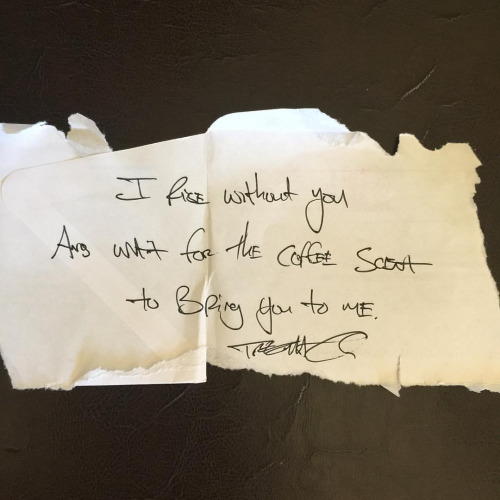 I Rise without you
And wait for the coffee scent
to Bring you to me.